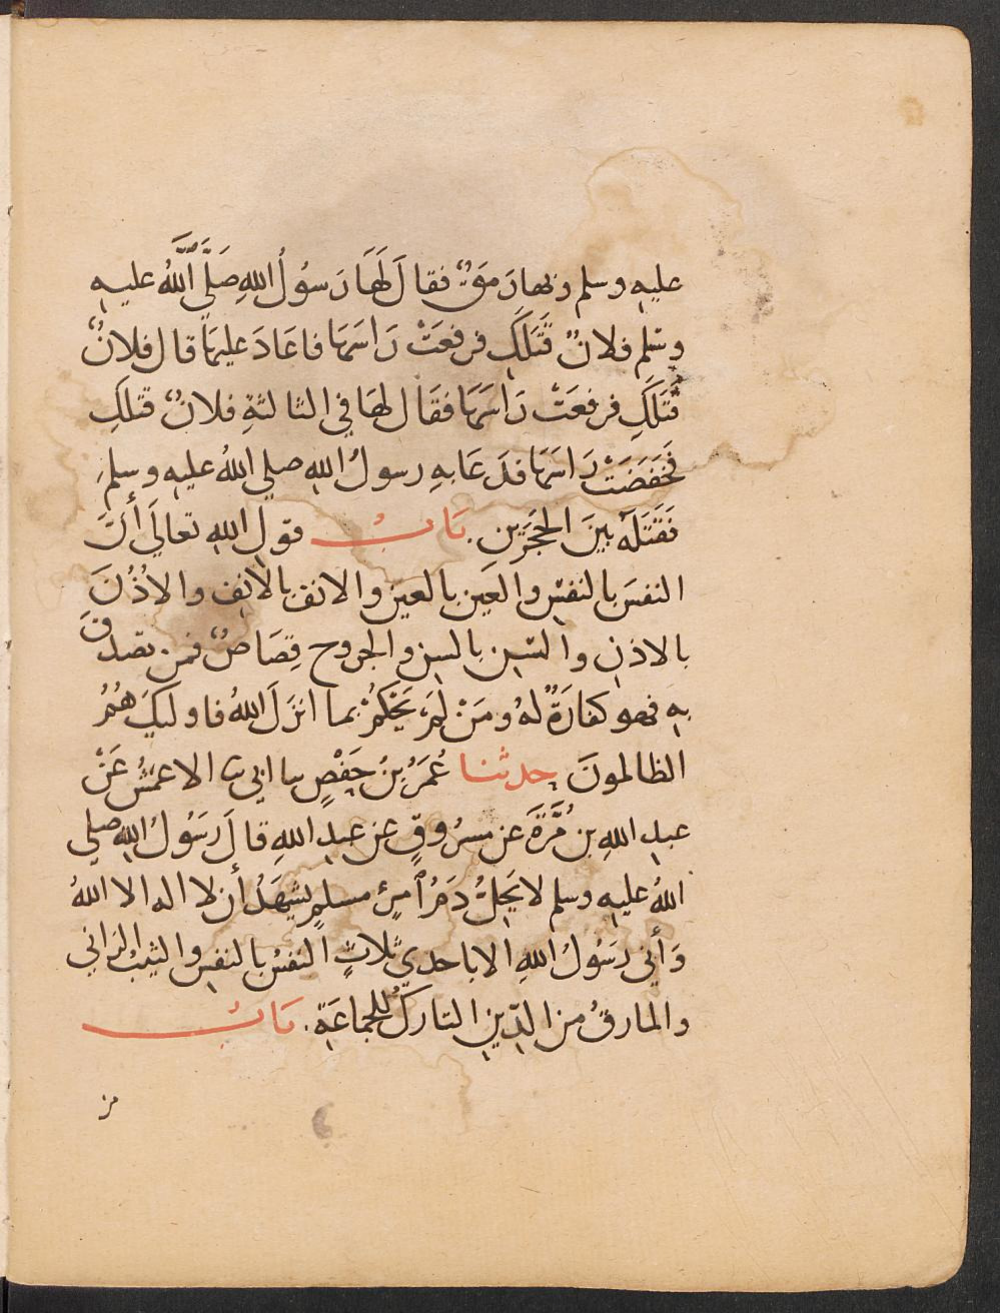 عليه وسلم وبها رَمَقٌ فقالَ لَهَا رَسُولُ اللهِ صَلَّى اللَّهُ عليه
وسلم فلانٌ قَتَلَكِ فرفعَتْ رَاسَهَا فاعَادَ عليهَا قال فلانٌ
قَتَلَكِ فرفعَتْ رَاسَهَا فقَال لهَا في الثالثةِ فلانٌ قتلكِ
فَخَفَضَتْ رَاسَهَا فدَعَا بهِ رسولُ اللهِ صلى اللهُ عليه وسلم
فَقَتَلَهُ بينَ الحَجَرَينِ. بَابُ قول اللهِ تعالَى أَنَّ
النفسَ بالنفسِ والعين بالعين والانف بالانف والاذُنَ
بالاذنِ والسّنِ بالسن والجروح قِصَاصٌ فمن تصدق
بهِ فهو كفارَةٌ لهُ ومَنْ لَمْ يَحْكُمْ بما انزلَ اللهُ فاوليكَ هُمُ
الظالمونَ حدثنا عُمَرُ بنُ حَفْصٍ ثنا ابي ثنا الاعمشُ عَنْ
عبدِ اللهِ بن مُرَّةَ عن مسرُوقٍ عن عبدِ اللهِ قالَ رَسُولُ اللهِ صلى
اللهُ عليه وسلم لا يَحِلُّ دَمُ امرِئٍ مسلمٍ يشهَدُ أن لا اله الا اللهُ
وَأني رَسُولُ اللهِ الا باحدى ثلاثٍ النفسُ بالنفسِ والثيبُ الزاني
والمارقُ من الدّينِ التاركُ للجماعَةِ. بَابُ
من